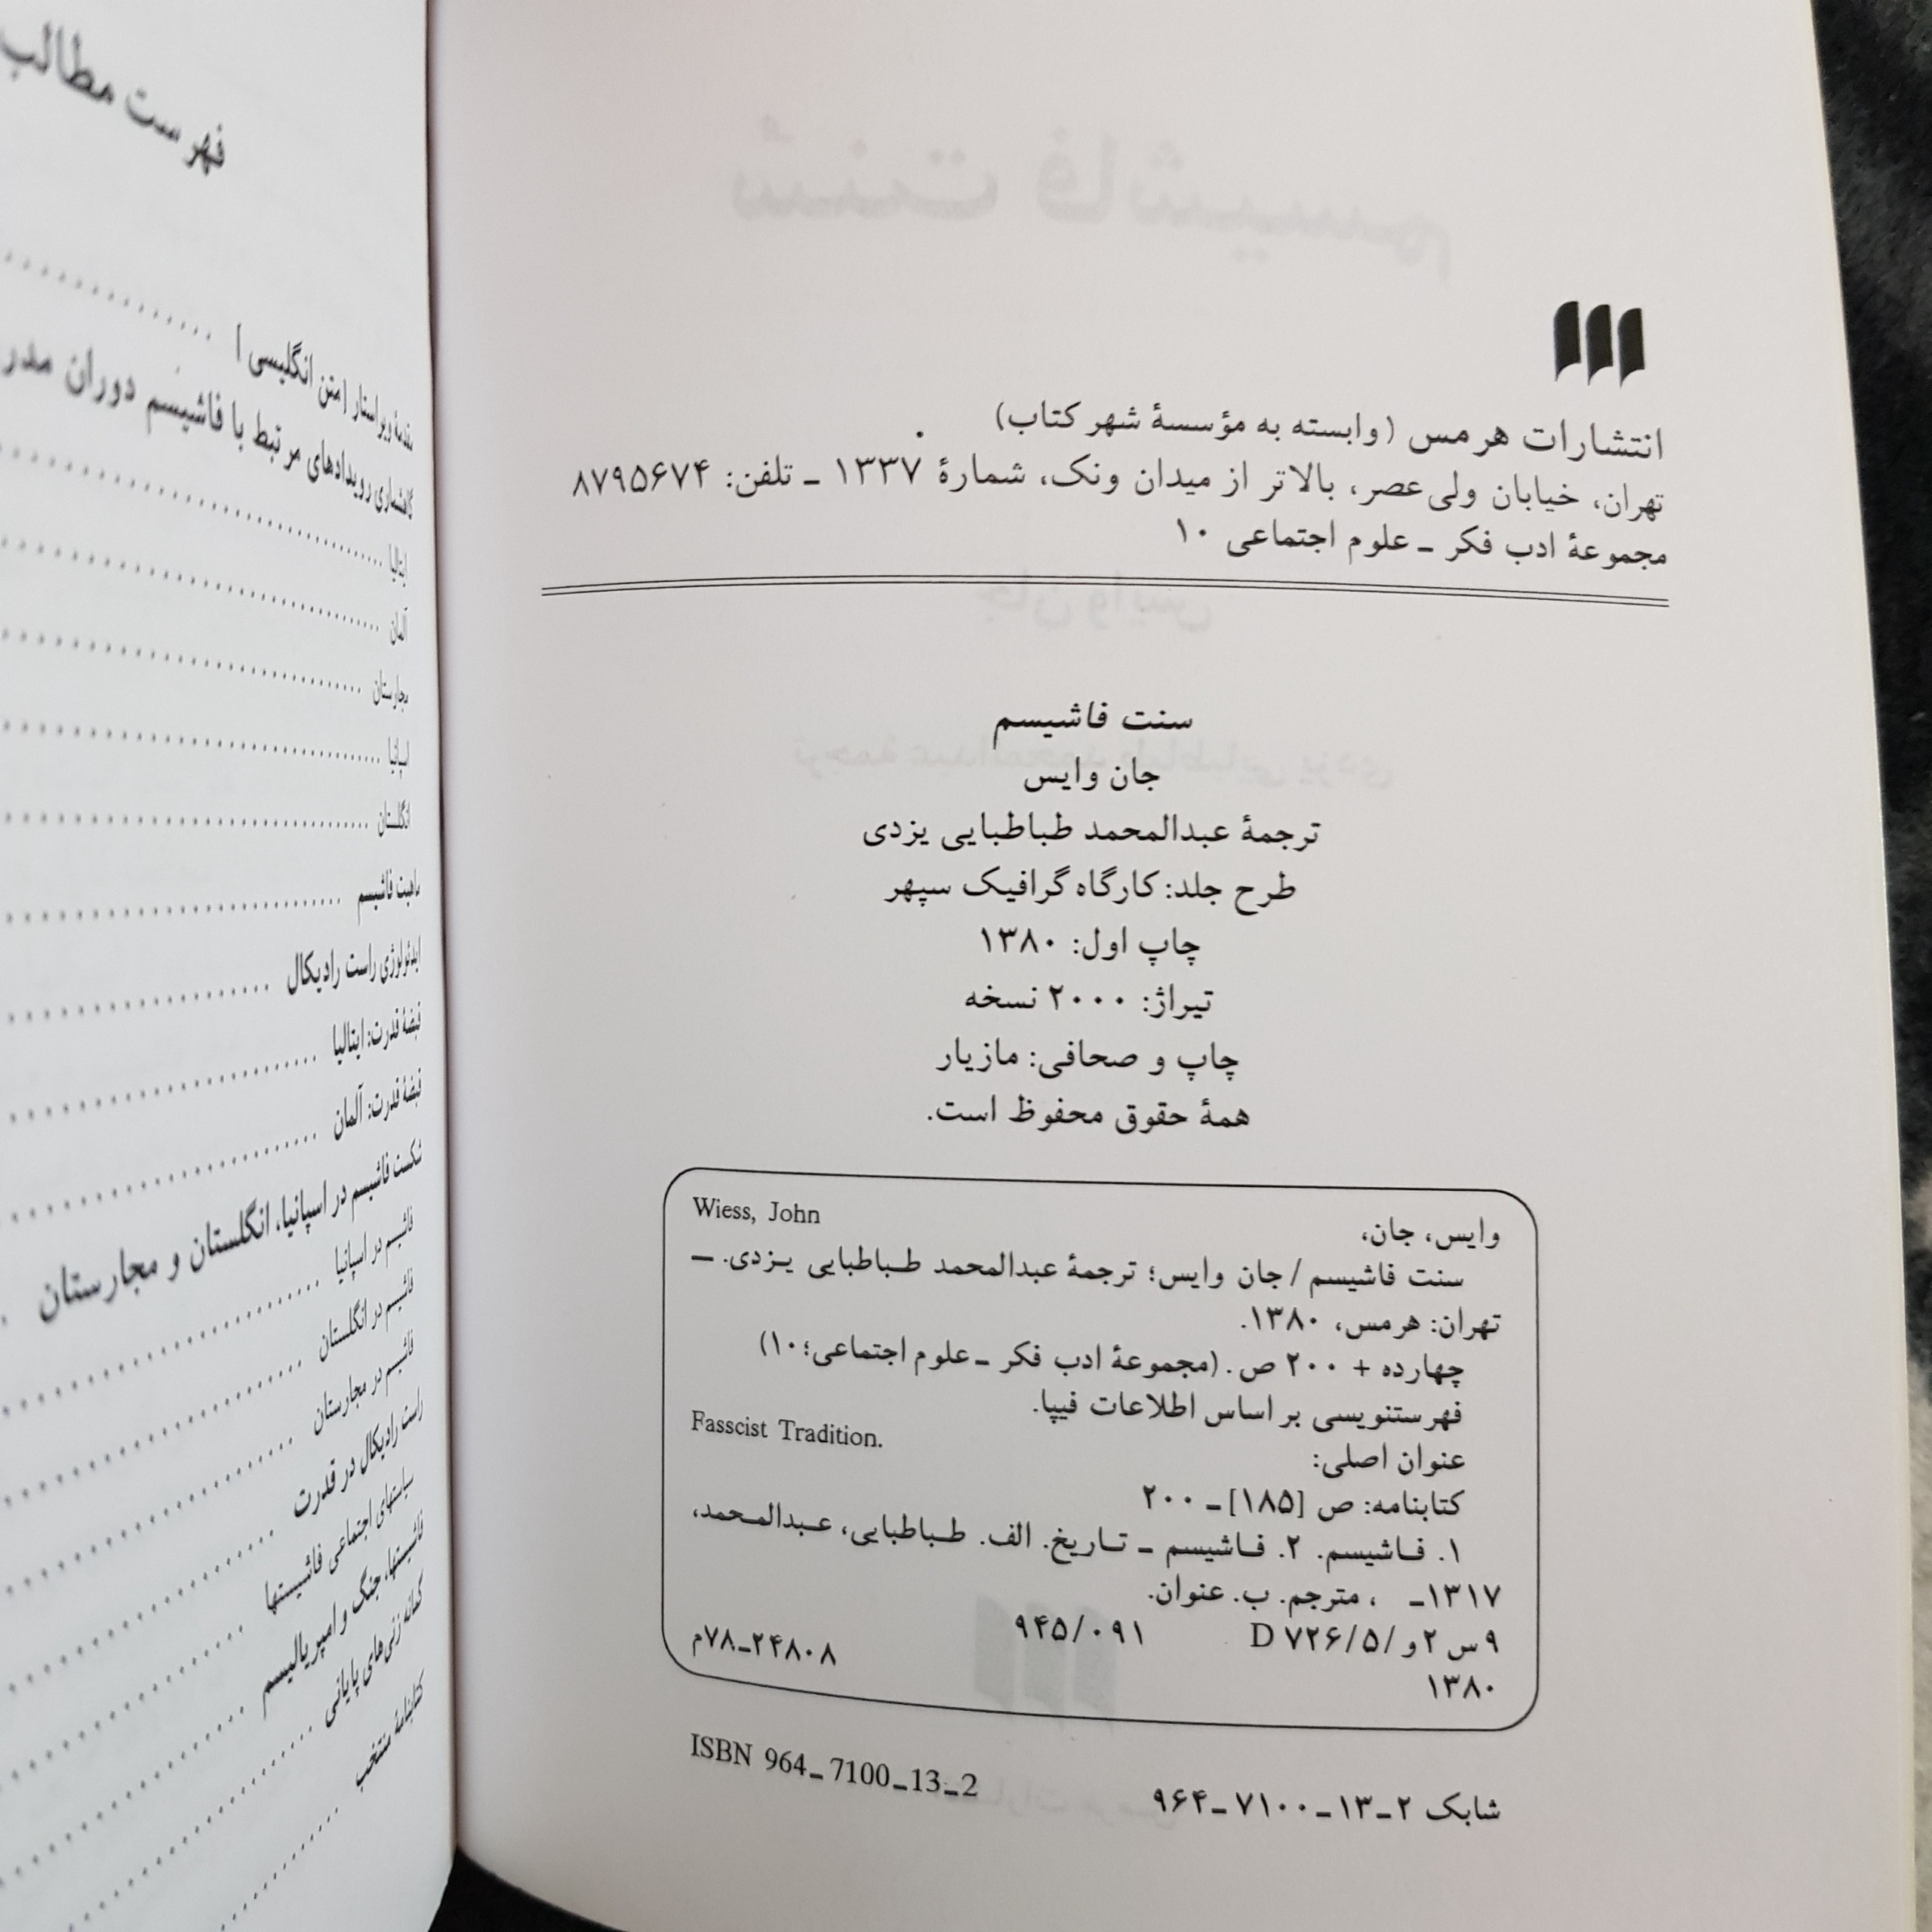 انتشارات هرمس (وابسته به مؤسسهٔ شهر کتاب)
تهران، خیابان ولی‌عصر، بالاتر از میدان ونک، شمارهٔ ۱۳۳۷ ـ تلفن: ۸۷۹۵۶۷۴
مجموعهٔ ادب فکر ـ علوم اجتماعی ۱۰
سنت فاشیسم
جان وایس
ترجمهٔ عبدالمحمد طباطبایی یزدی
طرح جلد: کارگاه گرافیک سپهر
چاپ اول: ۱۳۸۰
تیراژ: ۲۰۰۰ نسخه
چاپ و صحافی: مازیار
همهٔ حقوق محفوظ است.
وایس، جان، Wiess, John
سنت فاشیسم / جان وایس؛ ترجمهٔ عبدالمحمد طباطبایی یزدی. ــ
تهران: هرمس، ۱۳۸۰.
چهارده + ۲۰۰ ص. (مجموعهٔ ادب فکر ـ علوم اجتماعی؛ ۱۰)
فهرستنویسی بر اساس اطلاعات فیپا.
عنوان اصلی: Fasscist Tradition.
کتابنامه: ص [۱۸۵] ـ ۲۰۰
۱. فاشیسم. ۲. فاشیسم ـ تاریخ. الف. طباطبایی، عبدالمحمد،
۱۳۱۷ـ ، مترجم. ب. عنوان.
۹س ۲و /۵/D ۷۲۶ ۹۴۵/۰۹۱ ۷۸ـ۲۴۸۰۸م
۱۳۸۰
شابک ۲ـ۱۳ـ۷۱۰۰ـ۹۶۴ ISBN 964_7100_13_2
فهرست مطالب
مقدمهٔ ویراستار [متن انگلیسی]
گاهشماری رویدادهای مرتبط با فاشیسم دوران
ایتالیا
آلمان
مجارستان
اسپانیا
انگلستان
ماهیت فاشیسم
ایدئولوژی راست رادیکال
قبضهٔ قدرت: ایتالیا
قبضهٔ قدرت: آلمان
شکست فاشیسم در اسپانیا، انگلستان و مجارستان
فاشیسم در اسپانیا
فاشیسم در انگلستان
فاشیسم در مجارستان
راست رادیکال در قدرت
سیاستهای اجتماعی فاشیستها
فاشیستها، جنگ و امپریالیسم
گمانه‌زنی‌های پایانی
کتابنامهٔ منتخب